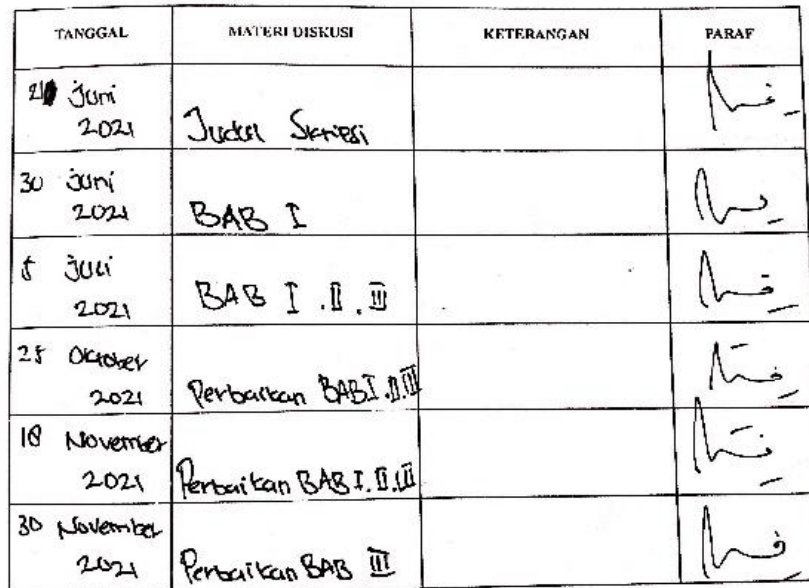 TANGGAL MATERI DISKUSI KETERANGAN PARAF
21 Juni
2021 Judul Skripsi
30 Juni
2021 BAB I
5 Juli
2021 BAB I . II . III
25 Oktober
2021 Perbaikan BAB I . II . III
18 November
2021 Perbaikan BAB I . II . III
30 November
2021 Perbaikan BAB III